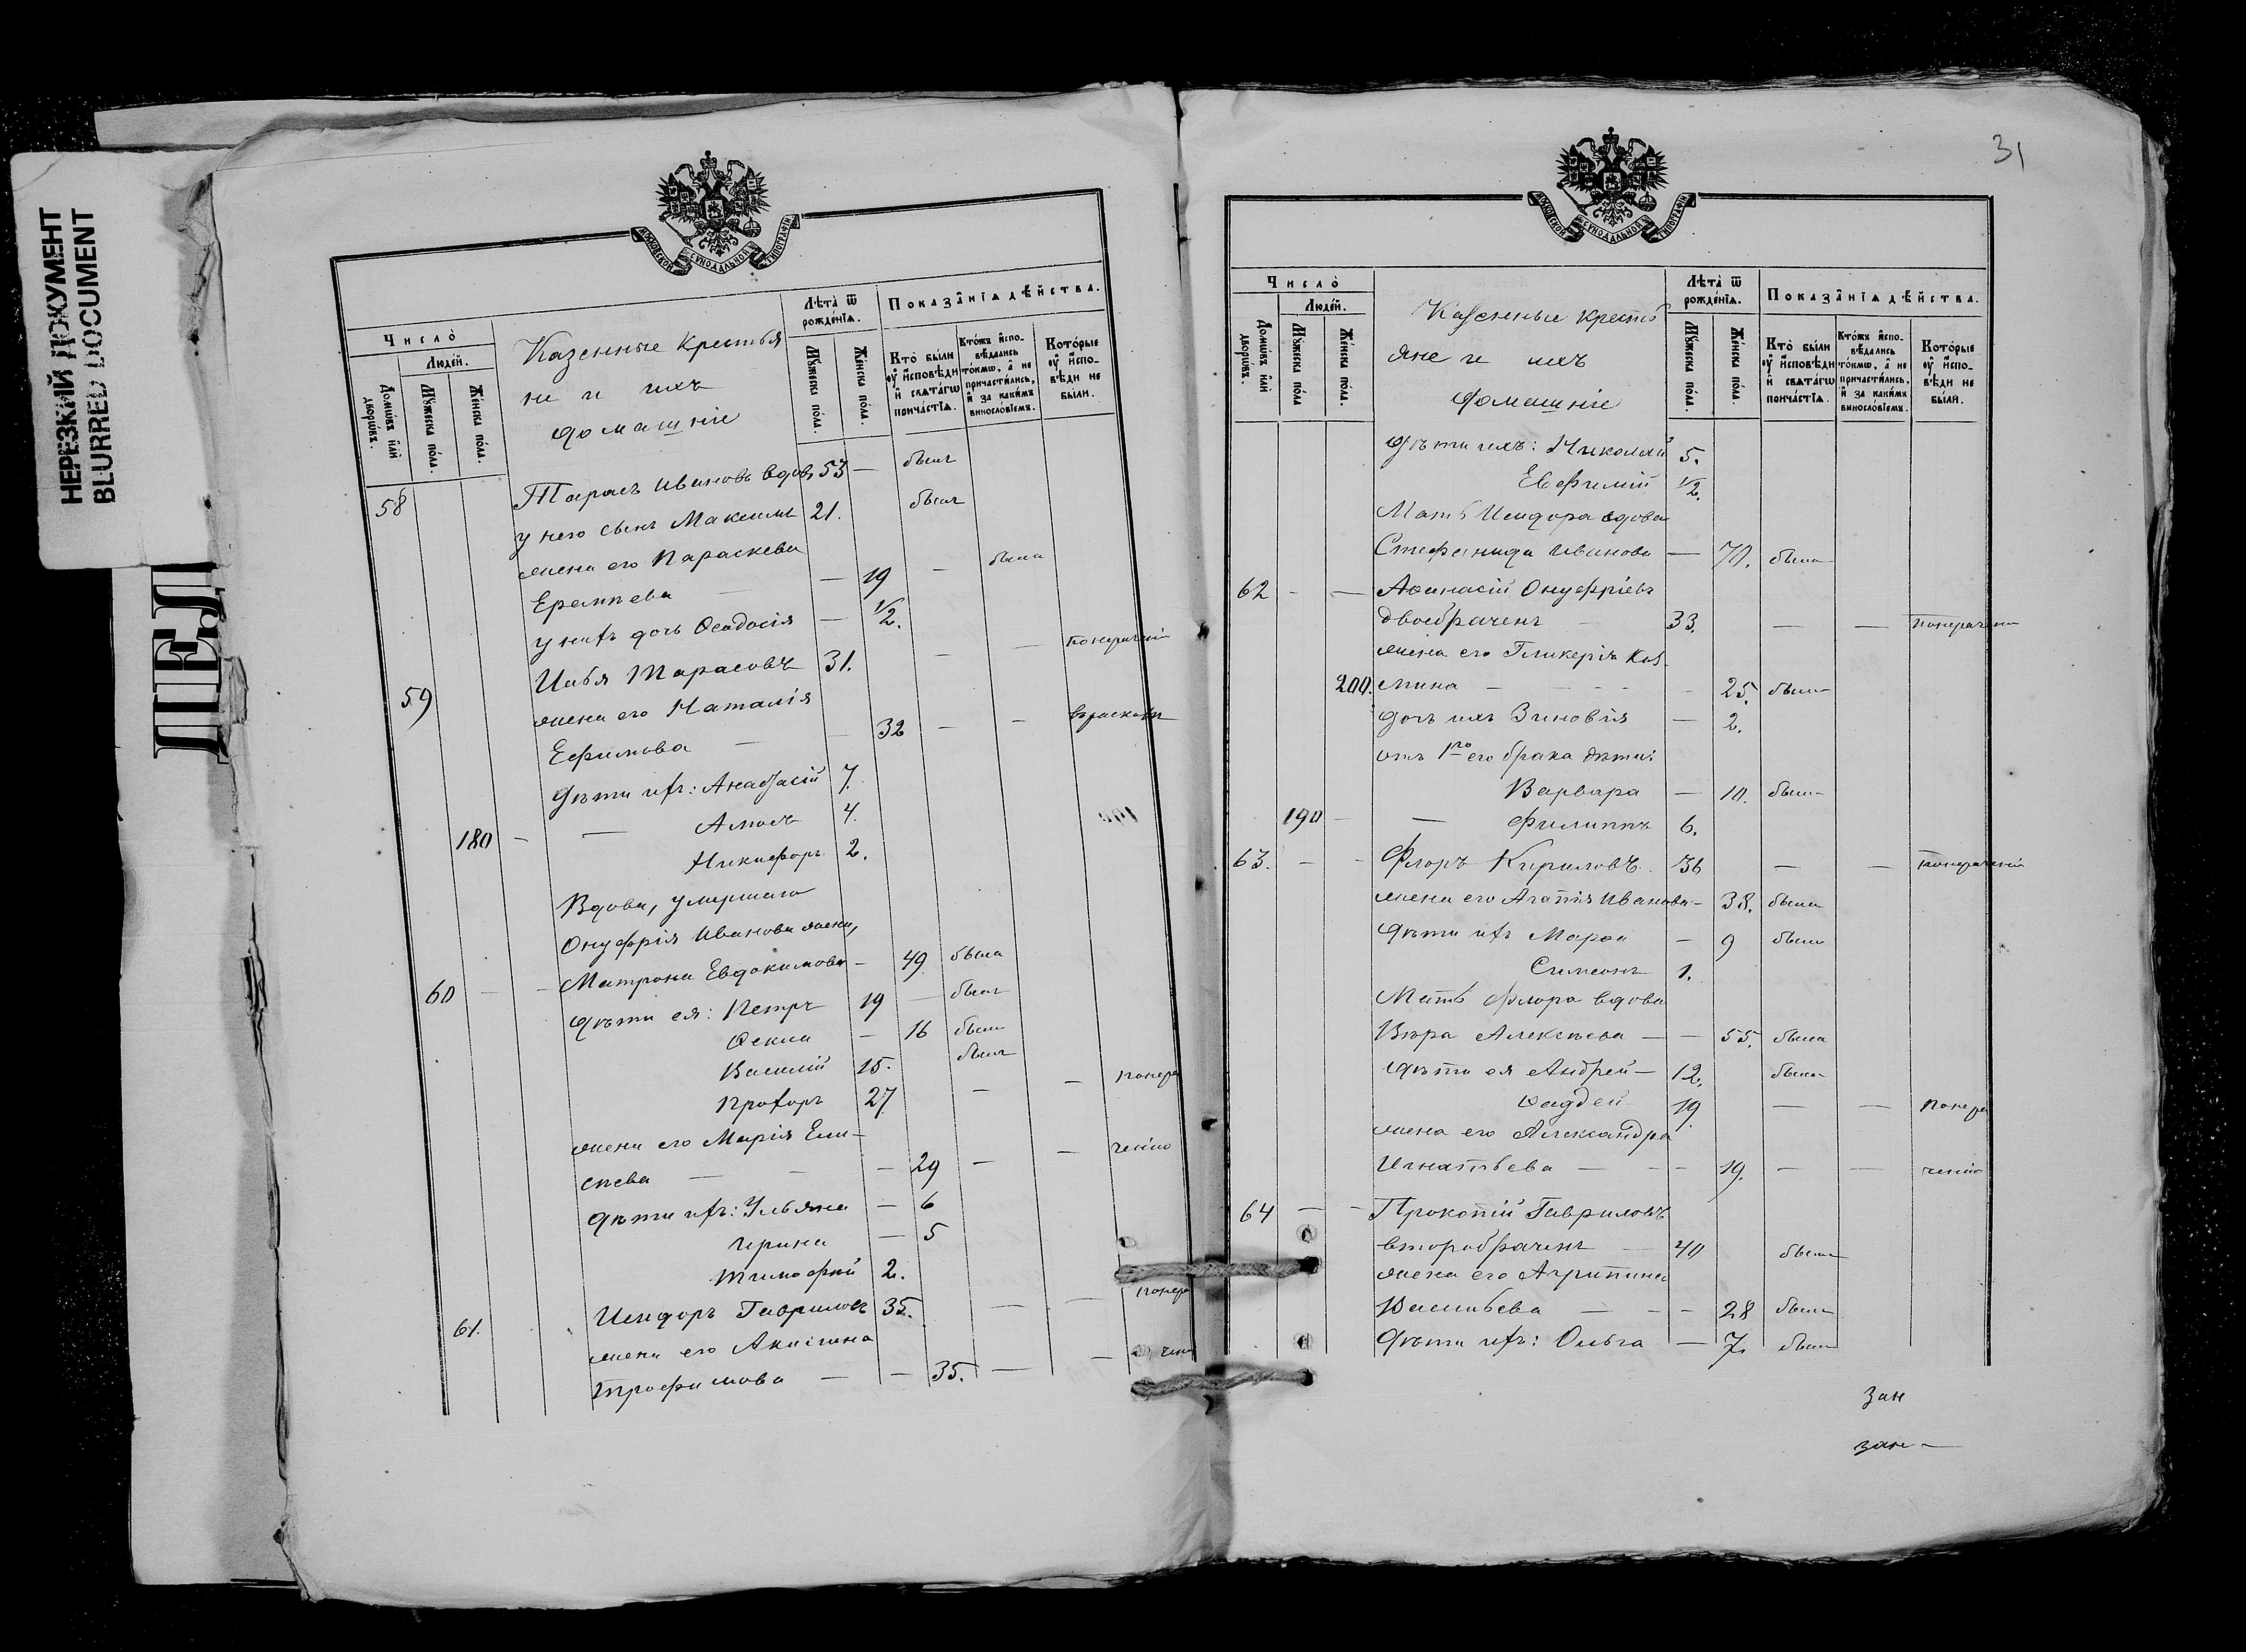 НЕРЕЗКИЙ ДОКУМЕНТ
BLURRED DOCUMENT
МОСКОВСКОЙ СУНОДАЛЬНОЙ ТИПОГРАФІИ
Число̀
Людей.
Домѡвъ и҆лѝ дворѡвъ.
Мꙋжеска пола.
Женска пола.
Казенные крестья
не и ихъ
домашніе
Лѣта̀ ѿ рожденїѧ.
Мꙋжеска пола.
Женска пола.
Показанїѧ дѣйства.
Кто̀ были ᲂу҆ и҆сповѣди и҆ свѧтагѡ причастїѧ.
Ктожъ и҆сповѣдались токмѡ, а҆ не причастились, и҆ за какимъ винословїемъ.
Которые ᲂу҆ и҆сповѣди не были.
58 Тарасъ Ивановъ вдов, 53 — былъ
у него сынъ Максимъ 21. былъ
жена его Параскева
Еремѣева — — 19 — была
у нихъ дочь Ѳеодосія — 1/2.
59 Илья Тарасовъ 31. — — понерачені
жена его Наталія
Ефимова — — 32 — —
Дѣти ихъ: Анастасій 7.
180 — — Амосъ 4.
Никифоръ 2.
Вдова, умершаго
Онуфрія Иванова жена,
60 — — Матрона Евдокимова — 49 была
Дѣти ея: Петръ 19 — былъ
Ѳекла — 16 была
Василій 15. былъ
Прохоръ 27 — — понера
жена его Марія Ели-
сѣева — — — 29 — — ченію
Дѣти ихъ: Ульяна — 6
Ирина — 5
Тимофей 2.
61. Исидоръ Гавриловъ 35. — — понера
жена его Акилина
Трофимова — — 35. — — чені
31
МОСКОВСКОЙ СУНОДАЛЬНОЙ ТИПОГРАФІИ
Число̀
Людей.
Домѡвъ и҆лѝ дворѡвъ.
Мꙋжеска пола
Женска пола.
Казенные кресть
яне и ихъ
домашніе
Лѣта̀ ѿ рожденїѧ.
Мꙋжеска пола.
Женска пола.
Показанїѧ дѣйства.
Кто̀ были ᲂу҆ и҆сповѣди и҆ свѧтагѡ причастїѧ.
Ктожъ и҆сповѣдались токмѡ, а҆ не причастились, и҆ за какимъ винословїемъ.
Которые ᲂу҆ и҆сповѣди не были.
Дѣти ихъ: Николай 5.
Евфимій 1/2.
Мать Исидора вдова
Стефанида Иванова — 70. была
62 - — Аѳанасій Онуфріевъ
двоебраченъ - 33. — — понерачени
жена его Гликерія Коз-
200. мина - - - - - 25. была
дочь ихъ Зиновія — 2.
отъ 1го его брака дѣти:
Варвара — 10. была
190 - — Филиппъ 6.
63. - - Флоръ Кириловъ 36 — — понераченію
жена его Агапія Иванова - 38. была
Дѣти ихъ Марѳа - 9 была
Симеонъ 1.
Мать Флора вдова
Вѣра Алексѣева — - 55. была
Дѣти ея Андрей — 12. былъ
Ѳаддей 19. — — понера
жена его Александра
Игнатьева — - - 19. - — ченію
64 - - Прокопій Гавриловъ
второбраченъ — 40 былъ
жена его Агрипина
Васильева — - - 28 была
Дѣти ихъ: Ольга — 7. была
Зан
зан-